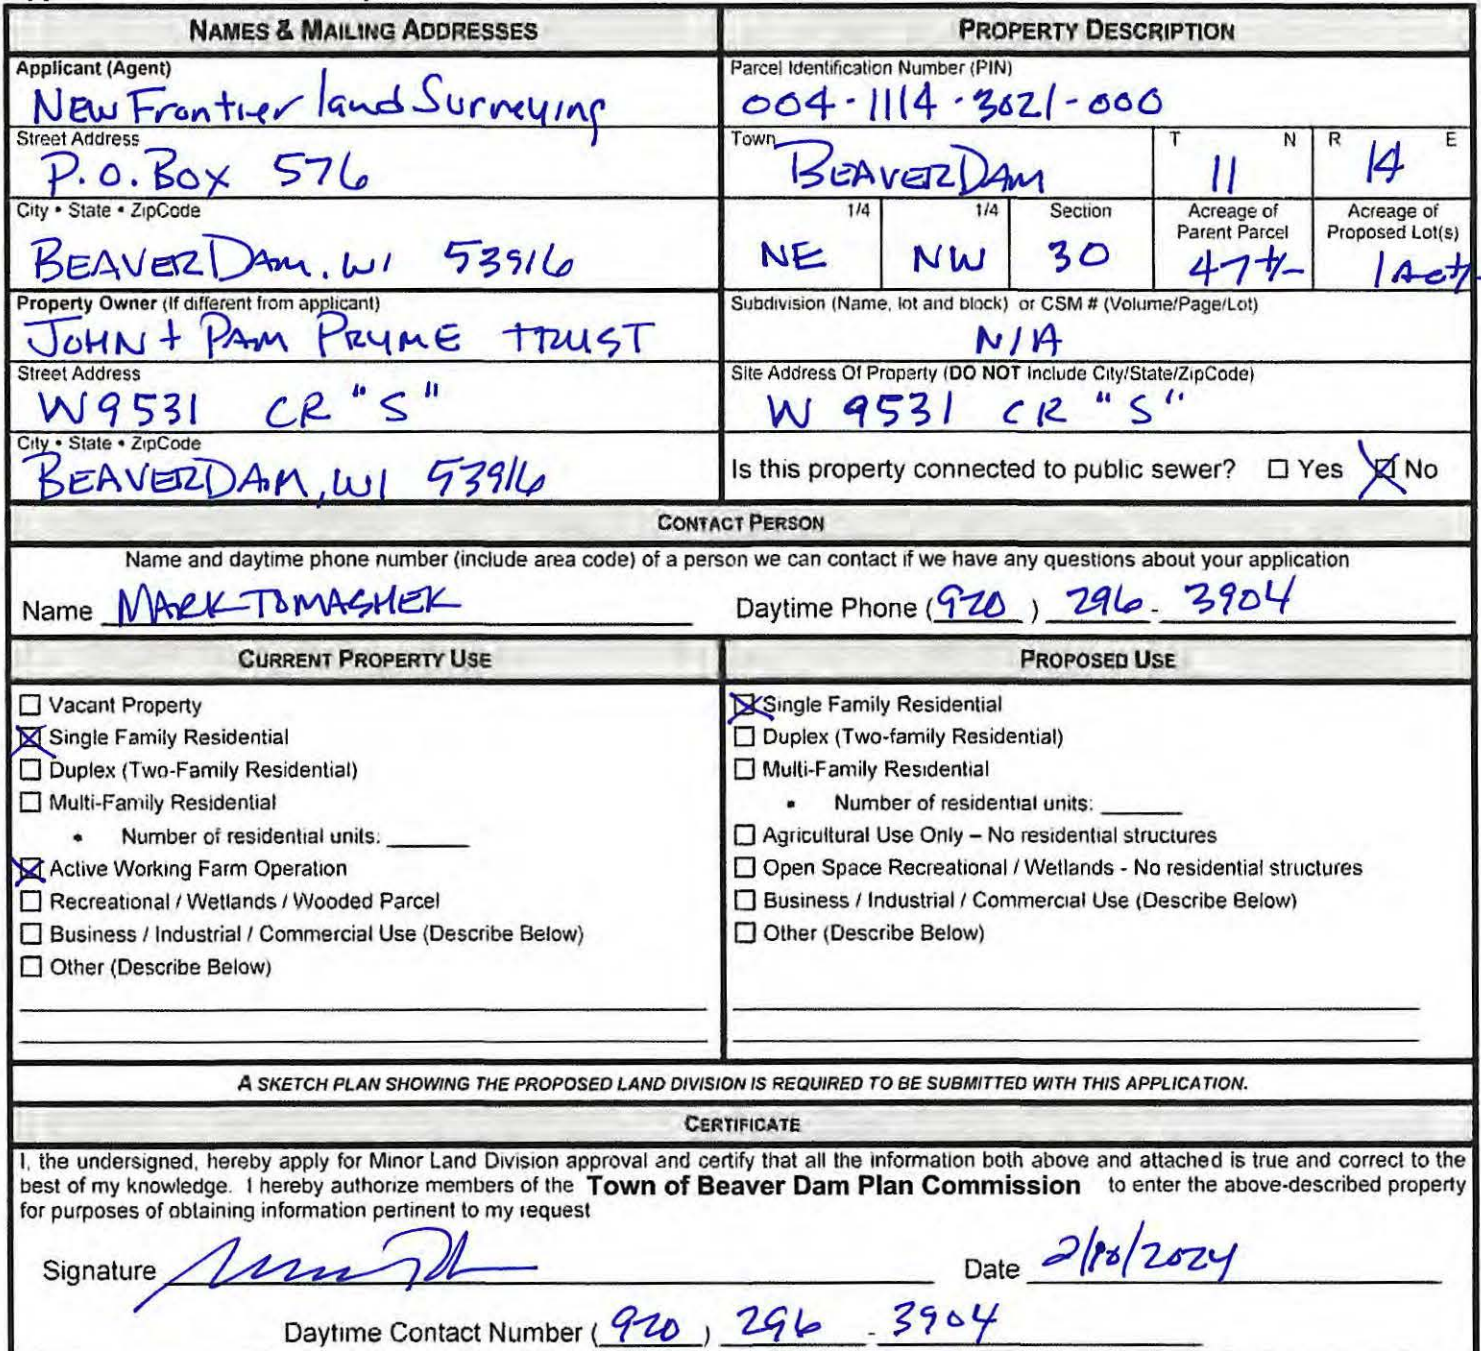 NAMES & MAILING ADDRESSES
PROPERTY DESCRIPTION
Applicant (Agent)
New Frontier land Surveying
Parcel Identification Number (PIN)
004-1114-3021-000
Street Address
P.O. Box 576
Town
BEAVER DAM
T N
11
R E
14
City • State • ZipCode
BEAVER DAM, WI 53916
1/4
NE
1/4
NW
Section
30
Acreage of
Parent Parcel
47 +/-
Acreage of
Proposed Lot(s)
1 Ac +/-
Property Owner (If different from applicant)
JOHN + PAM PRYME TRUST
Subdivision (Name, lot and block) or CSM # (Volume/Page/Lot)
N/A
Street Address
W9531 CR "S"
Site Address Of Property (DO NOT Include City/State/ZipCode)
W 9531 CR "S"
City • State • ZipCode
BEAVER DAM, WI 53916
Is this property connected to public sewer? ☐ Yes ☒ No
CONTACT PERSON
Name and daytime phone number (include area code) of a person we can contact if we have any questions about your application
Name MARK TOMASHEK Daytime Phone (920) 296-3904
CURRENT PROPERTY USE
☐ Vacant Property
☒ Single Family Residential
☐ Duplex (Two-Family Residential)
☐ Multi-Family Residential
• Number of residential units: ______
☒ Active Working Farm Operation
☐ Recreational / Wetlands / Wooded Parcel
☐ Business / Industrial / Commercial Use (Describe Below)
☐ Other (Describe Below)
PROPOSED USE
☒ Single Family Residential
☐ Duplex (Two-family Residential)
☐ Multi-Family Residential
• Number of residential units: ______
☐ Agricultural Use Only – No residential structures
☐ Open Space Recreational / Wetlands - No residential structures
☐ Business / Industrial / Commercial Use (Describe Below)
☐ Other (Describe Below)
A SKETCH PLAN SHOWING THE PROPOSED LAND DIVISION IS REQUIRED TO BE SUBMITTED WITH THIS APPLICATION.
CERTIFICATE
I, the undersigned, hereby apply for Minor Land Division approval and certify that all the information both above and attached is true and correct to the
best of my knowledge. I hereby authorize members of the Town of Beaver Dam Plan Commission to enter the above-described property
for purposes of obtaining information pertinent to my request
Signature
Date 2/ /2024
Daytime Contact Number (920) 296-3904